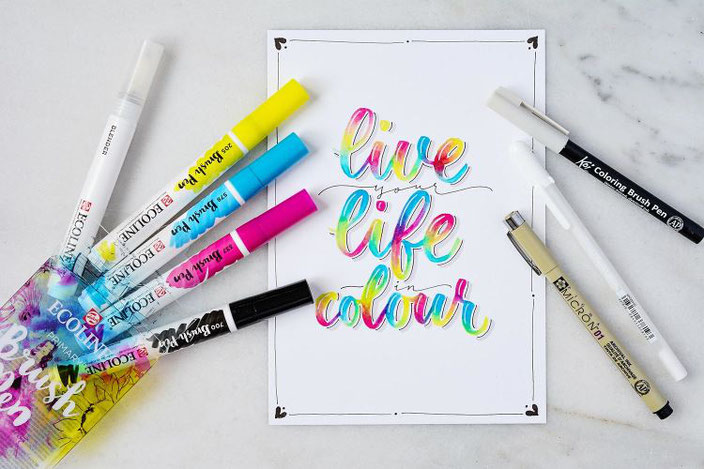 live
your
life
in
colour
BLENDER
ECOLINE
205 Brush Pen
ECOLINE
578 Brush Pen
ECOLINE
337 Brush Pen
ECOLINE
700 Brush Pen
ECOLINE
ECOLINE
PRIMARY
Brush
Pen
Koi Coloring Brush Pen
AP
MICRON 01
AP